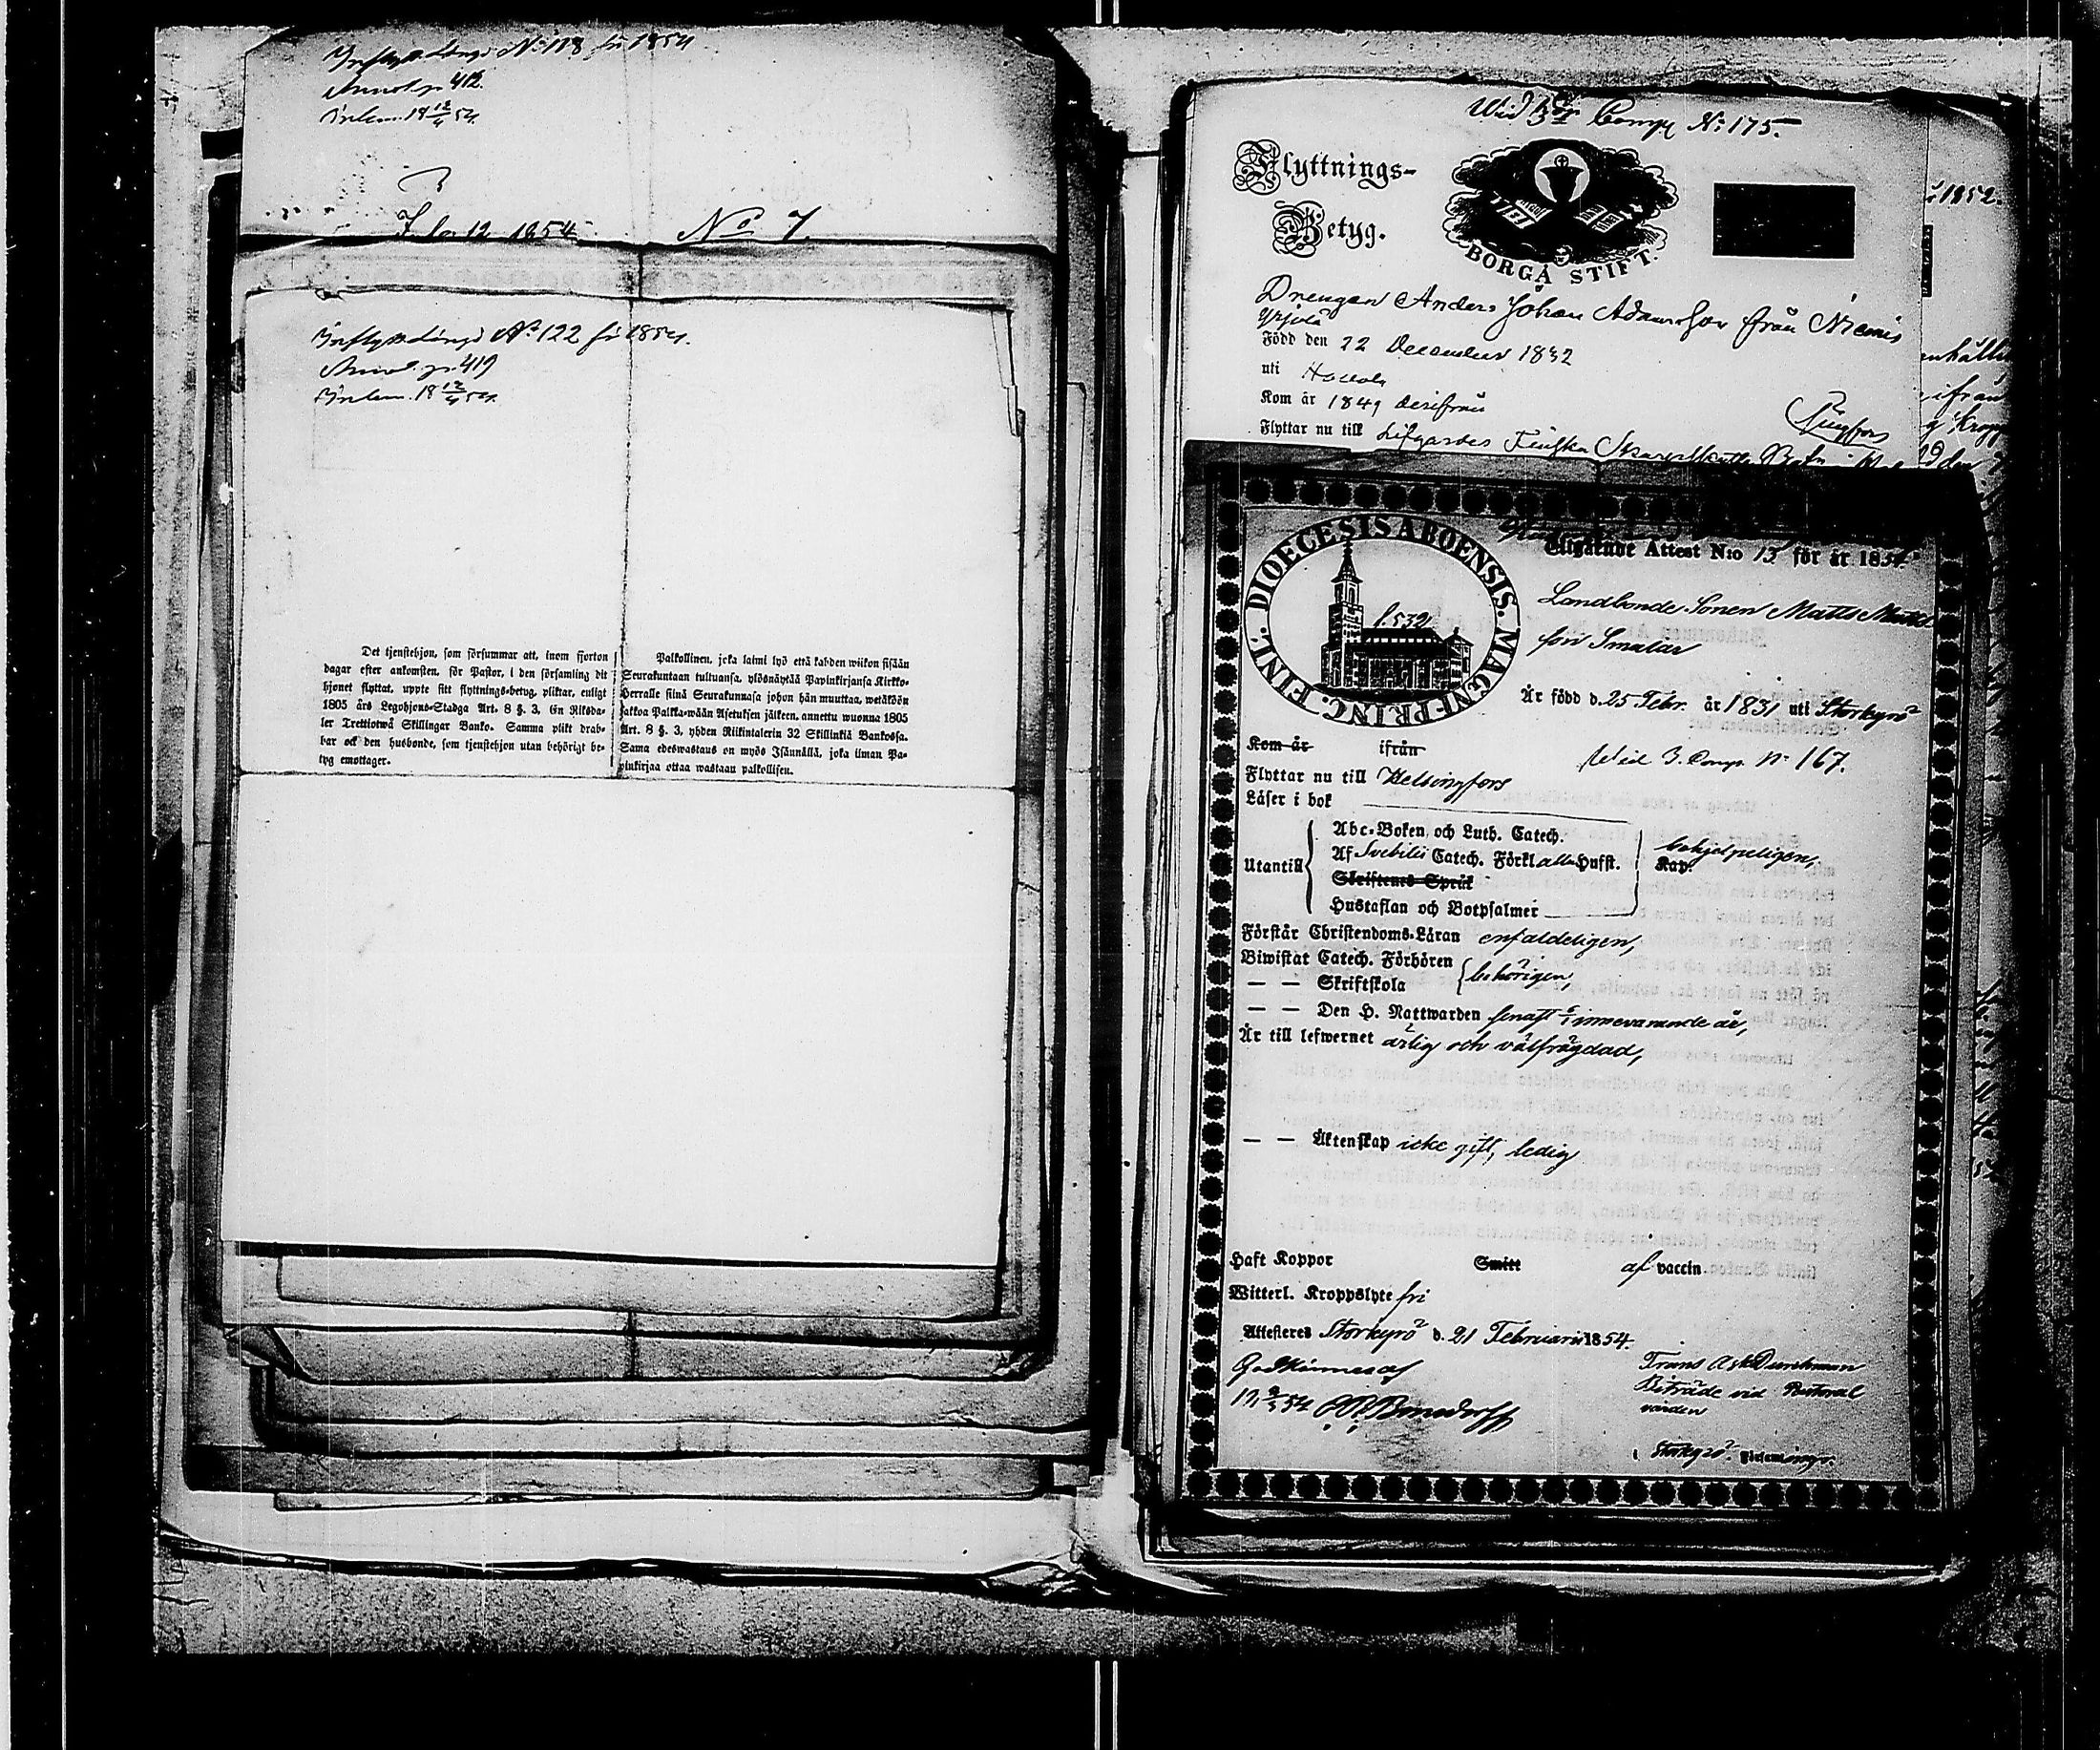 Inflyttelängd No 118 för 1854
Annot. p. 412.
Inlem. 18 12/4 54.
12 1854
No 7.
Inflyttelängd No 122 för 1854.
Annot. p. 419
Inlem. 18 12/4 54.
Det tjenstehjon, som försummar att, inom fjorton
dagar efter ankomsten, för Pastor, i den församling dit
hjonet flyttat, uppte sitt flyttnings-betyg, pliktar, enligt
1805 års Legohjons-Stadga Art. 8 §. 3, En Riksda-
ler Trettiotwå Skillingar Banko. Samma plikt drab-
bar ock den husbonde, som tjenstehjon utan behörigt be-
tyg emottager.
Palkollinen, joka laimi lyö että kahden wiikon sisään
Seurakuntaan tultuansa, ylösnäytää Papinkirjansa Kirkko-
herralle siinä Seurakunnasa johon hän muuttaa, wetäköön
sakkoa Palkka-wään Asetuksen jälkeen, annettu wuonna 1805
Art. 8 §. 3, yhden Riikintalerin 32 Skillinkiä Bankossa.
Sama edeswastaus on myös Isäunällä, joka ilman Pa-
pinkirjaa ottaa wastaan palkollisen.
Wid 3 Comp N: 175.
Flyttnings-
Betyg.
BORGÅ STIFT.
Drengen Anders Johan Adamsson från Niemis
Yrjölä
Född den 22 December 1832
uti Hollola
Kom år 1849 derifrån
Flyttar nu till Lifgardes Finska Skarpskytte Bat.
Helsingfors
1852.
DIOECESIS ABOENSIS. MAGNI PRINC. FINL.
f. 532
Utgående Attest N:o 13 för år 1854.
Landbonde Sonen Matts Matts
son Smular
Är född d. 25 Febr. år 1831 uti Storkyrö
Kom år ifrån
Wid 3. Comp. No 167.
Flyttar nu till Helsingfors
Läser i bok
Utantill
Abc-Boken, och Luth. Catech.
Af Svebilii Catech. Förkl alla Hufst. Kap. behjelpeligen,
Skriftenes Språk
Hustaflan och Botpsalmer
Förstår Christendoms-Läran enfaldeligen,
Biwistat Catech. Förhören
— — Skriftskola behörigen,
— — Den H. Nattwarden senast innevarande år,
Är till lefwernet ärlig och välfrägdad,
— — Äktenskap icke gift, ledig
Haft Koppor Smitt af vaccin
Witterl. Kroppslyte fri
Attesteras Storkyrö d. 21 Februarii 1854.
Godkännes af
Frans Durchman
Biträde vid Pastoral
vården
i Storkyrö